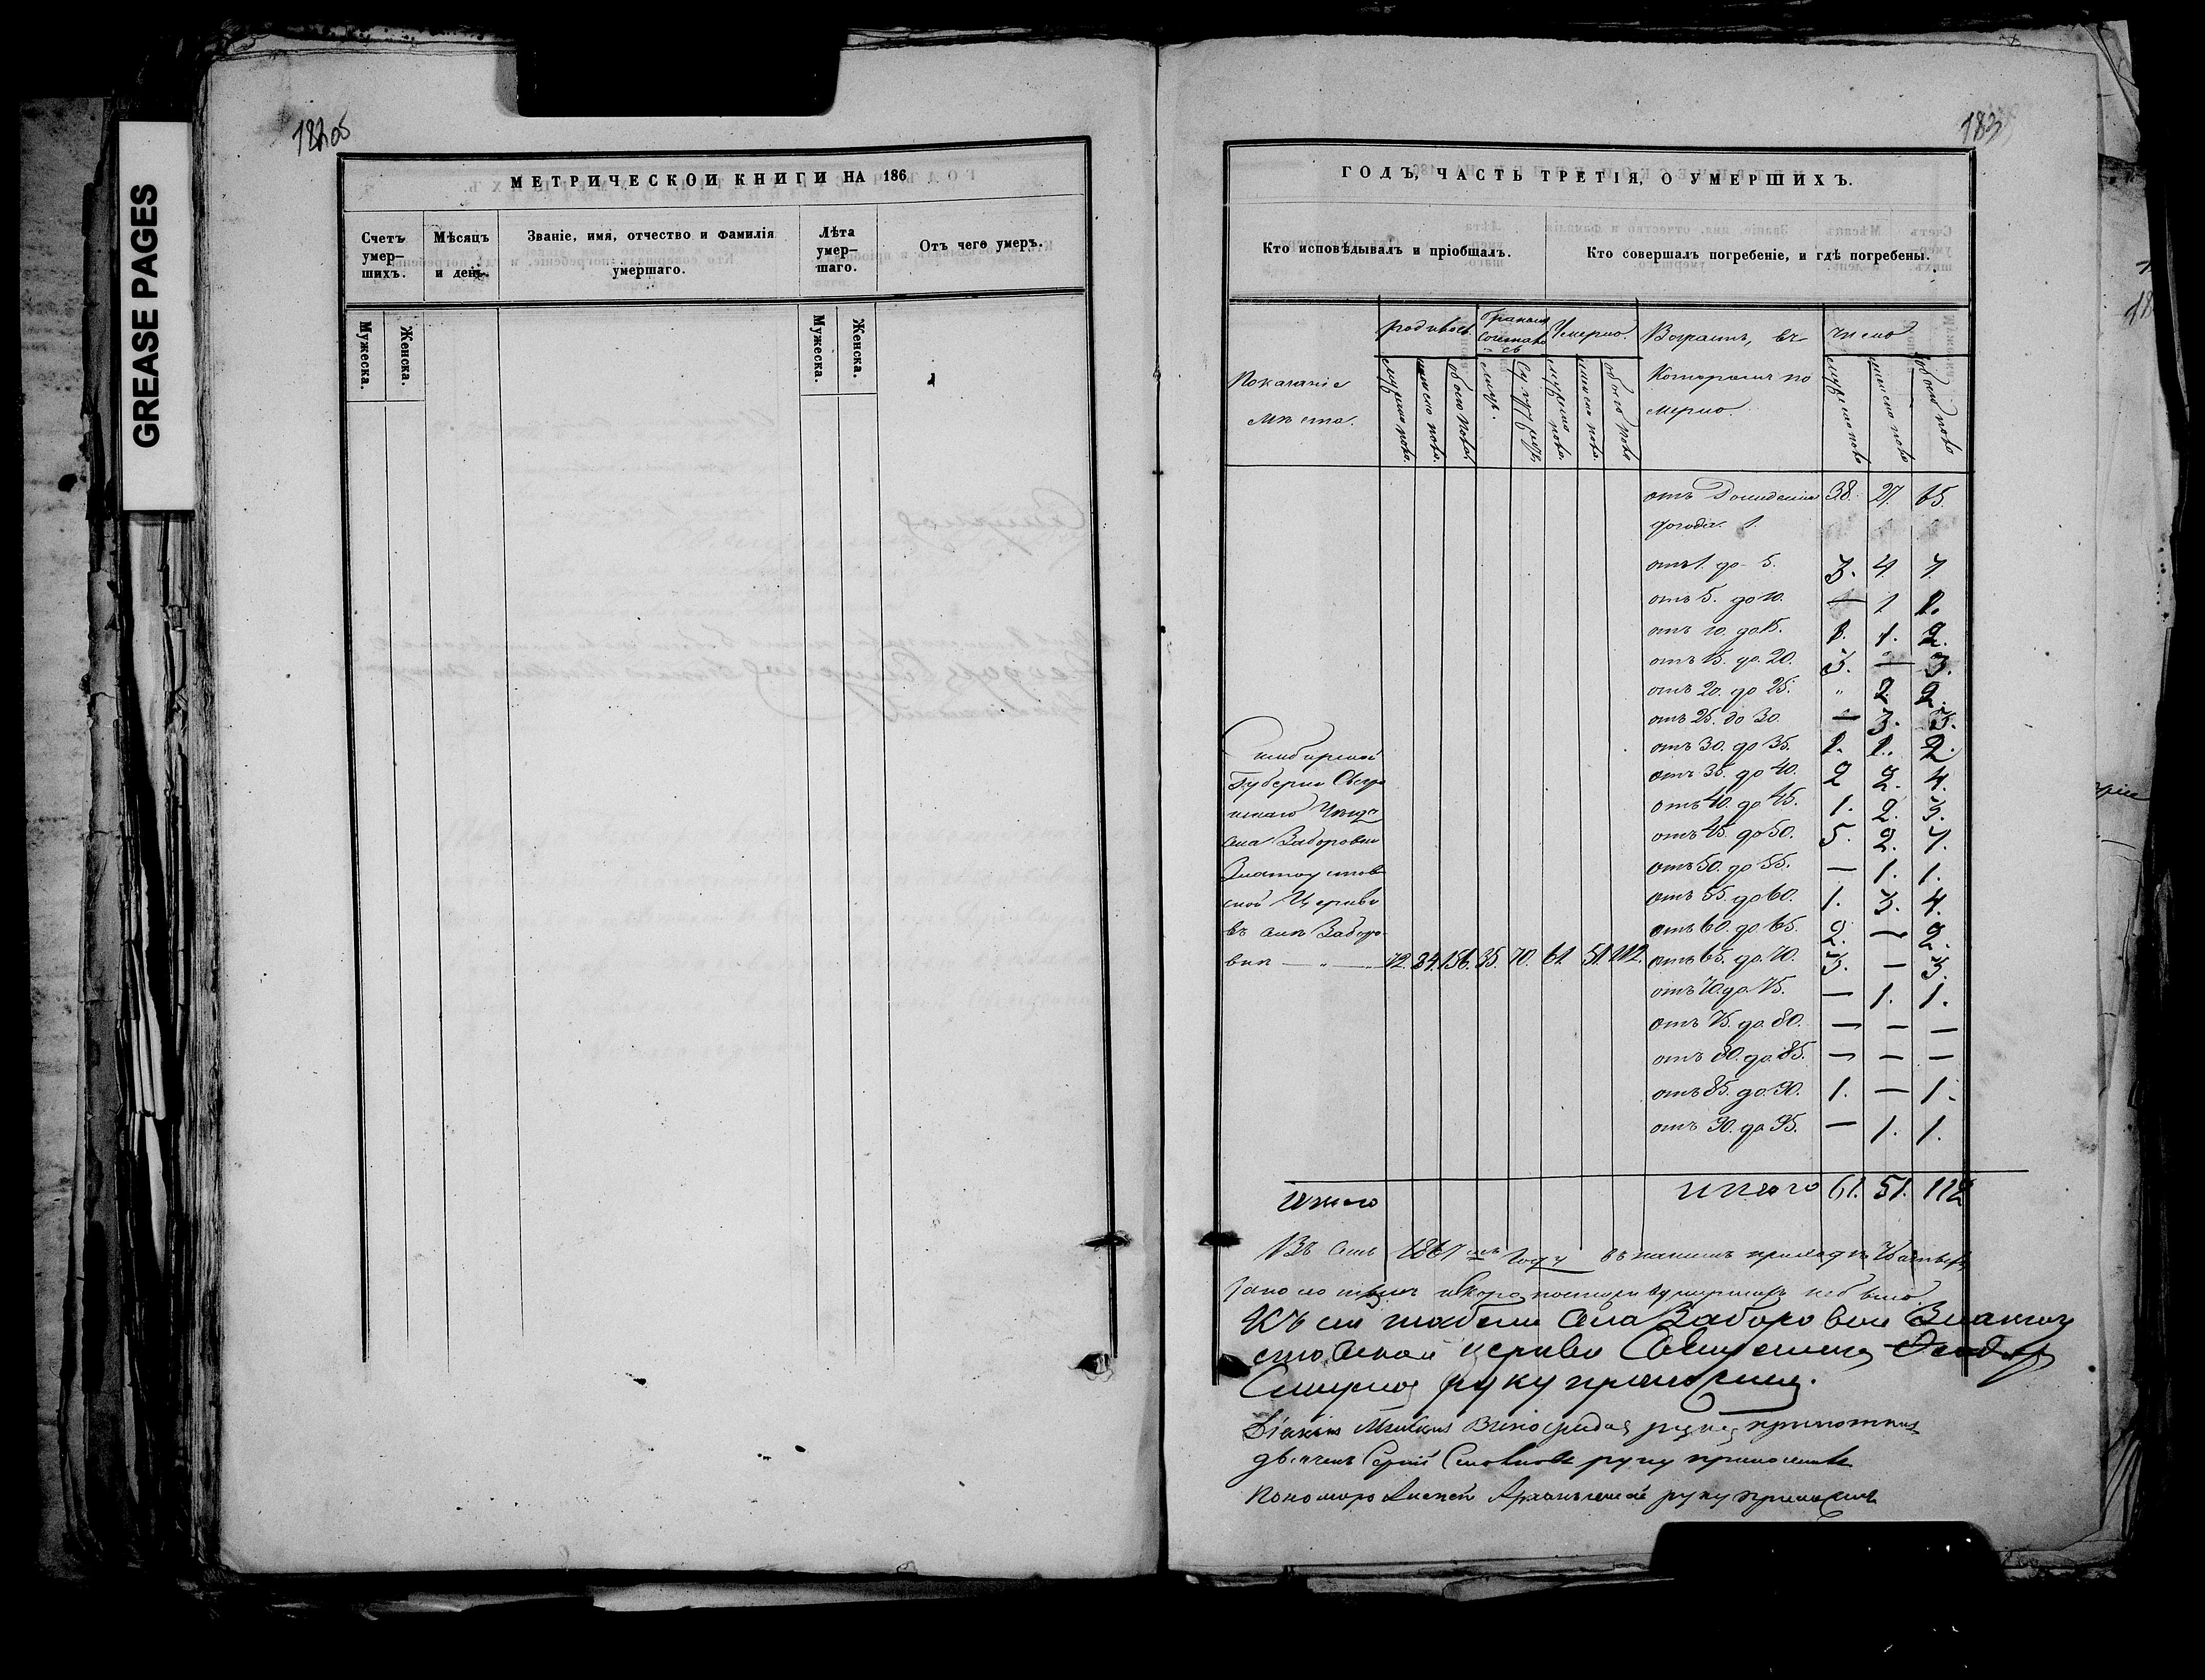 GREASE PAGES
183
МЕТРИЧЕСКОЙ КНИГИ НА 186
Счетъ умер-шихъ.
Мѣсяцъ и день.
Званіе, имя, отчество и фамилія умершаго.
Лѣта умер-шаго.
Отъ чего умеръ.
Мужеска.
Женска.
Мужеска.
Женска.
ГОДЪ, ЧАСТЬ ТРЕТІЯ, О УМЕРШИХЪ.
Кто исповѣдывалъ и пріобщалъ.
Кто совершалъ погребеніе, и гдѣ погребены.
Показаніе мѣста.
родилось
бракомъ сочетавось
Умерло.
Возрастъ, въ которомъ померло.
число
мужеска пола.
женска пола.
обоего пола.
мужеска пола.
женска пола.
обоего пола
мужеска пола
женска пола
обоего пола
отъ рожденія до года 1. 38. 27. 65.
отъ 1. до 5. 3. 4. 7.
отъ 5. до 10. — 1 1.
отъ 10. до 15. 1. 1. 2.
отъ 15. до 20. 3. — 3.
отъ 20. до 25. " 2. 2.
отъ 25. до 30. — 3. 3.
отъ 30. до 35. 1. 1. 2.
отъ 35. до 40. 2 2. 4.
отъ 40. до 45. 1. 2. 3.
отъ 45. до 50. 5. 2. 7.
отъ 50. до 55. — 1. 1.
отъ 55. до 60. 1. 3. 4.
отъ 60. до 65. 2. — 2.
отъ 65. до 70. 3. — 3.
отъ 70. до 75. — 1. 1.
отъ 75. до 80. — — —
отъ 80. до 85. — — —
отъ 85. до 90. 1. — 1.
отъ 90. до 95. — 1. 1.
Симбирской
Губерніи Сызра
нскаго Уѣзда
села Заборовки
Златоустов
ской Церкви
въ селѣ Заборо
вкѣ — " — 72. 84. 156. 35. 70. 61. 51. 112.
Итого
итого 61. 51. 112
Въ семъ 1867 мъ году въ нашемъ приходѣ
скоропостижно умершихъ небыло
Къ сей табели села Заборовки Златоу
стовской церкви Священникъ Феодоръ
Смирновъ руку приложилъ.
Діаконъ Виноградовъ руку приложилъ
дьячекъ Сергій руку приложилъ
Пономарь Алексѣй Архангельскій руку приложилъ